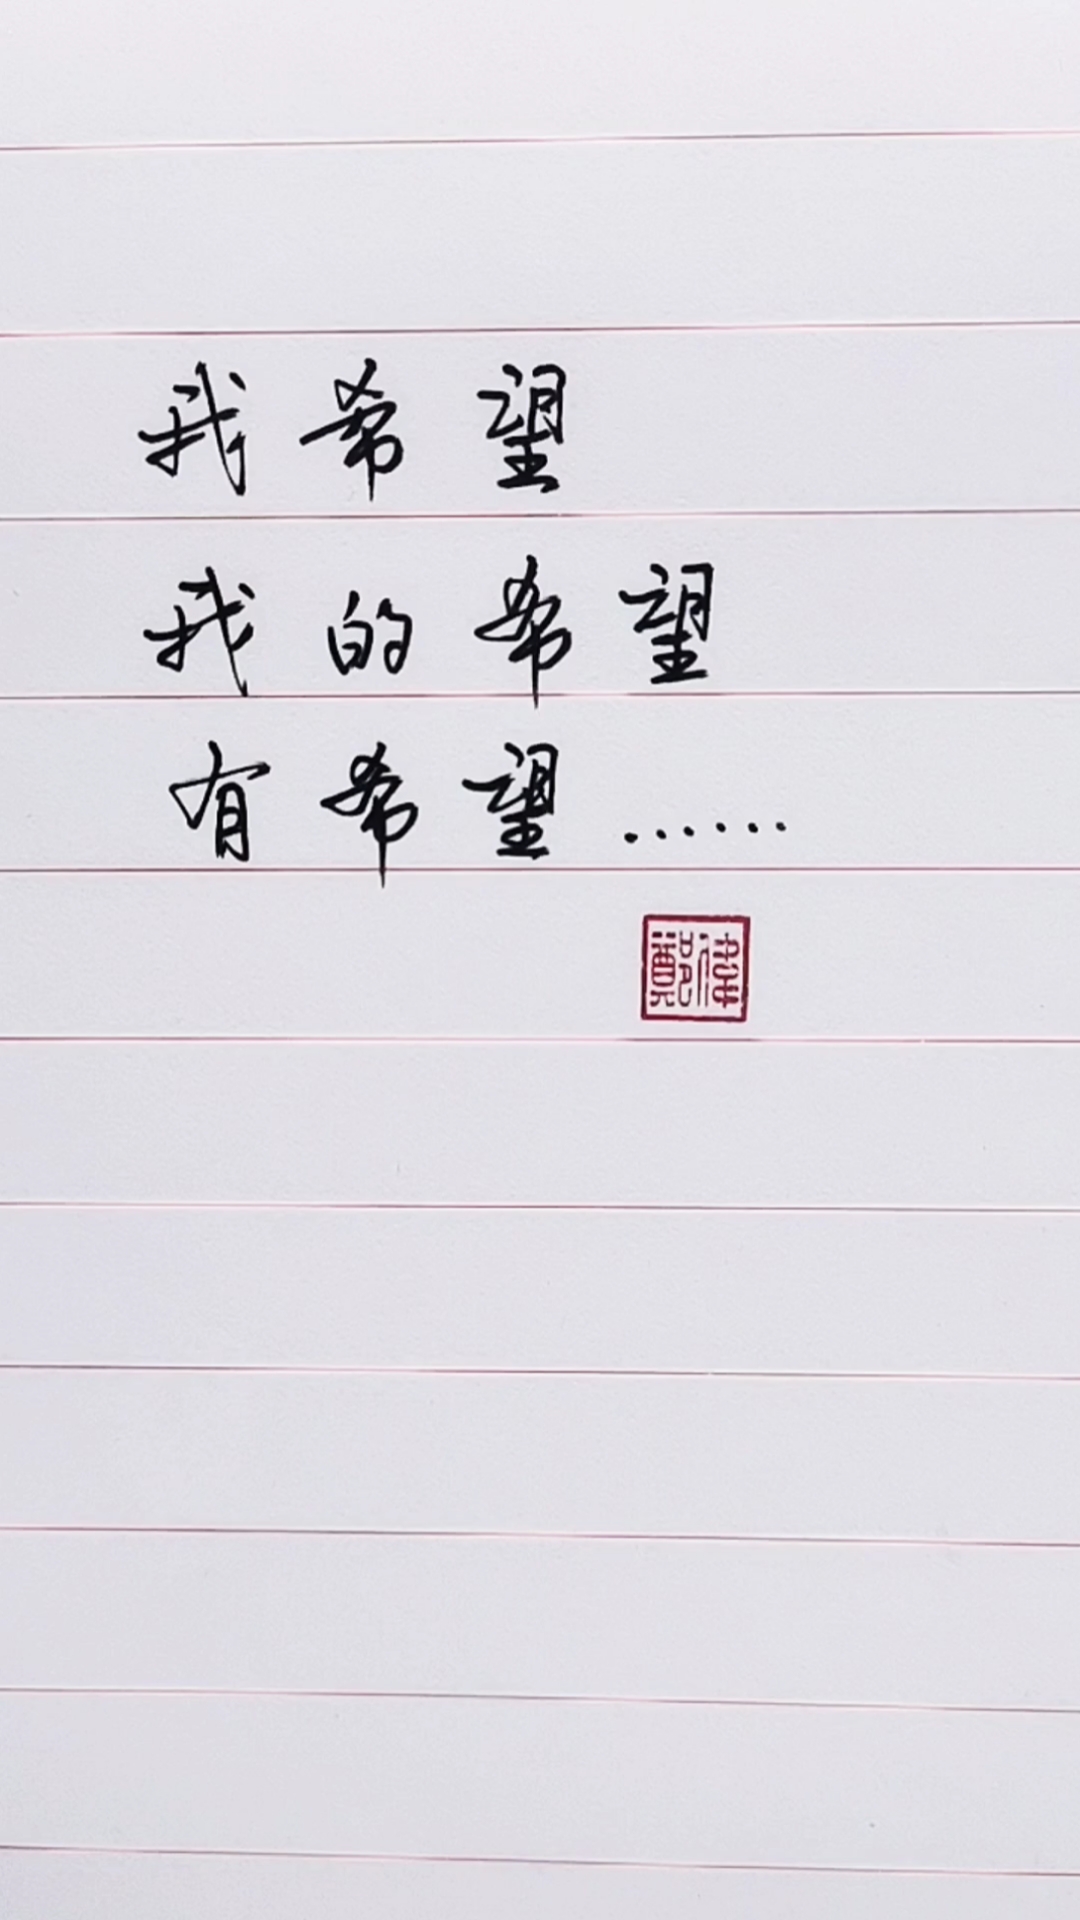 我希望
我的希望
有希望……
鄭偉